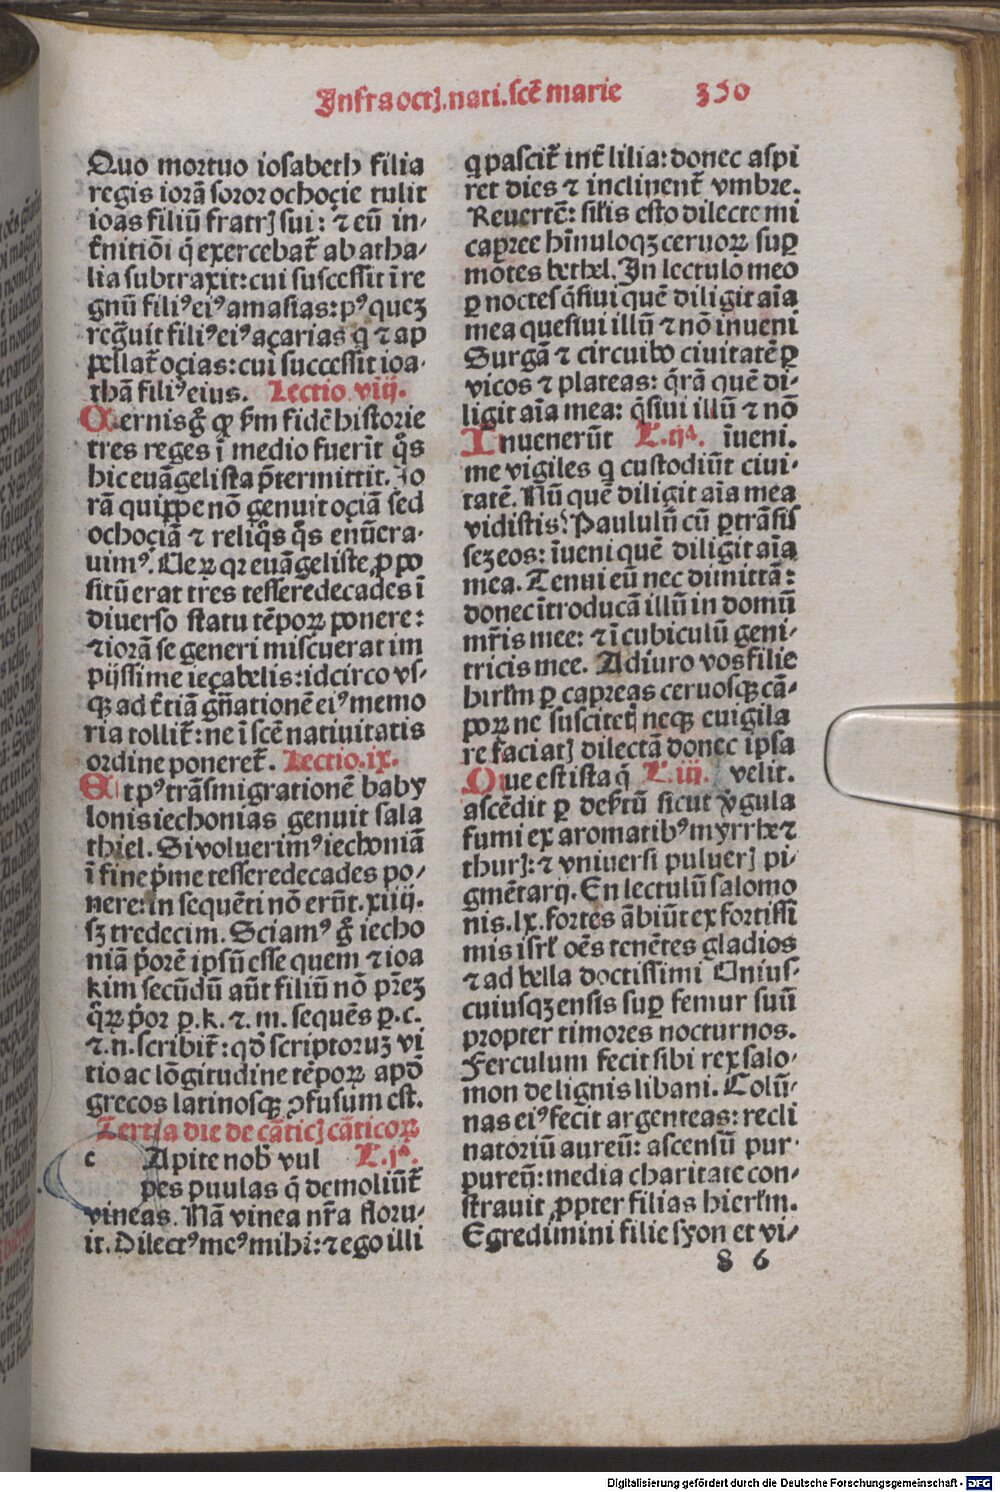 Infra octꝭ. nati. scē marie 350
Quo mortuo iosabeth filia
regis iorā soror ochoçie tulit
ioas filiū fratrꝭ sui: ⁊ eū in-
t̄nitiōi q̄ exercebat̄ ab atha-
lia subtraxit: cui successit ī re
gnū filiꝰ eiꝰ amasias: pꝰ quez
regnuit filiꝰ eiꝰ açarias q̄ ⁊ ap
pellat̄ oçias: cui successit ioa-
thā filiꝰ eius. Lectio viij.
Cernis gͦ qꝙ s̄m fidē historie
tres reges ī medio fuerīt q̄s
hic euāgelista p̄termittit. Jo
rā quippe nō genuit oçiā sed
ochoçiā ⁊ reliq̄s q̄s enūera-
uimꝰ. Ueꝝ qꝛ euāgeliste ꝓpo
sitū erat tres tesseredecades ī
diuerso statu tēpoꝝ ponere:
⁊ iorā se generi miscuerat im
pijssime ieçabelis: idcirco vs-
qꝫ ad t̄tiā gn̄ationē eiꝰ memo
ria tollit̄: ne ī scē natiuitatis
ordine poneret̄. Lectio. ix.
Et pꝰ trāsmigrationē baby
lonis iechonias genuit sala
thiel. Si voluerimꝰ iechoniā
ī fine p̄me tesseredecades po-
nere: in sequēti nō erūt. xiiij.
sꝫ tredecim. Sciamꝰ gͦ iecho
niā p̄orē ip̄sū esse quem ⁊ ioa
kim secūdū aūt filiū nō pr̄ez
q̄ꝝ p̄or ꝑ. k. ⁊. m. sequēs ꝑ. c.
⁊. n. scribit̄: qd̄ scriptoruz vi
tio ac lōgitudine tēpoꝝ apd̄
grecos latinosqꝫ ꝯfusum est.
Tertia die de cāticꝭ cāticoꝝ
c Apite nob̄ vul L. jᵃ.
pes puulas q̄ demoliūt̄
vineas. Nā vinea nr̄a floru-
it. Dilectꝰ meꝰ mihi: ⁊ ego illi
q pascit̄ int̄ lilia: donec aspi
ret dies ⁊ inclinent̄ vmbre.
Reuertē: sil̄is esto dilecte mi
capree hīnuloqꝫ ceruoꝝ suꝑ
mōtes bethel. In lectulo meo
ꝑ noctes q̄siui quē diligit aīa
mea quesiui illū ⁊ nō inueni
Surgā ⁊ circuibo ciuitatē ꝑ
vicos ⁊ plateas: q̄rā quē di-
ligit aīa mea: q̄siui illū ⁊ nō
Inuenerūt L. ijᵃ. īueni.
me vigiles q custodiūt ciui-
tatē. Nū quē diligit aīa mea
vidistis? Paululū cū ꝑtrāsis
sez eos: īueni quē diligit aīa
mea. Tenui eū nec dimittā:
donec ītroducā illū in domū
mr̄is mee: ⁊ ī cubiculū geni-
tricis mee. Adiuro vos filie
hirlm̄ ꝑ capreas ceruosqꝫ cā-
poꝝ ne suscitetꝭ neqꝫ euigila
re faciatꝭ dilectā donec ipsa
Que est ista q̄ L. iij. velit.
ascēdit ꝑ desertū sicut v̄gula
fumi ex aromatibꝰ myrrhe ⁊
thurꝭ: ⁊ vniuersi puluerꝭ pi-
gmētarij. En lectulū salomo
nis. lx. fortes ābiūt ex fortissi
mis isrl̄ oēs tenētes gladios
⁊ ad bella doctissimi Unius-
cuiusqꝫ ensis suꝑ femur suū
propter timores nocturnos.
Ferculum fecit sibi rex salo-
mon de lignis libani. Colū-
nas eiꝰ fecit argenteas: recli
natoriū aureū: ascensū pur-
pureū: media charitate con-
strauit ꝓpter filias hierlm̄.
Egredimini filie syon et vi-
8 6
Digitalisierung gefördert durch die Deutsche Forschungsgemeinschaft - DFG